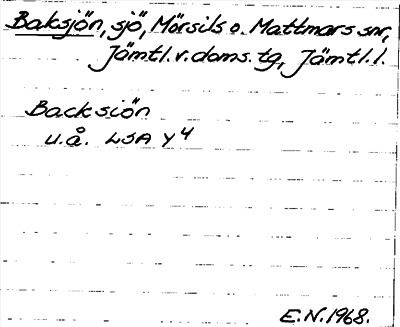 Baksjön, sjö, Mörsils o. Mattmars snr,
Jämtl. v. doms. tg, Jämtl. l.
Backsiön
u.å. LSA Y4
E.N. 1968.